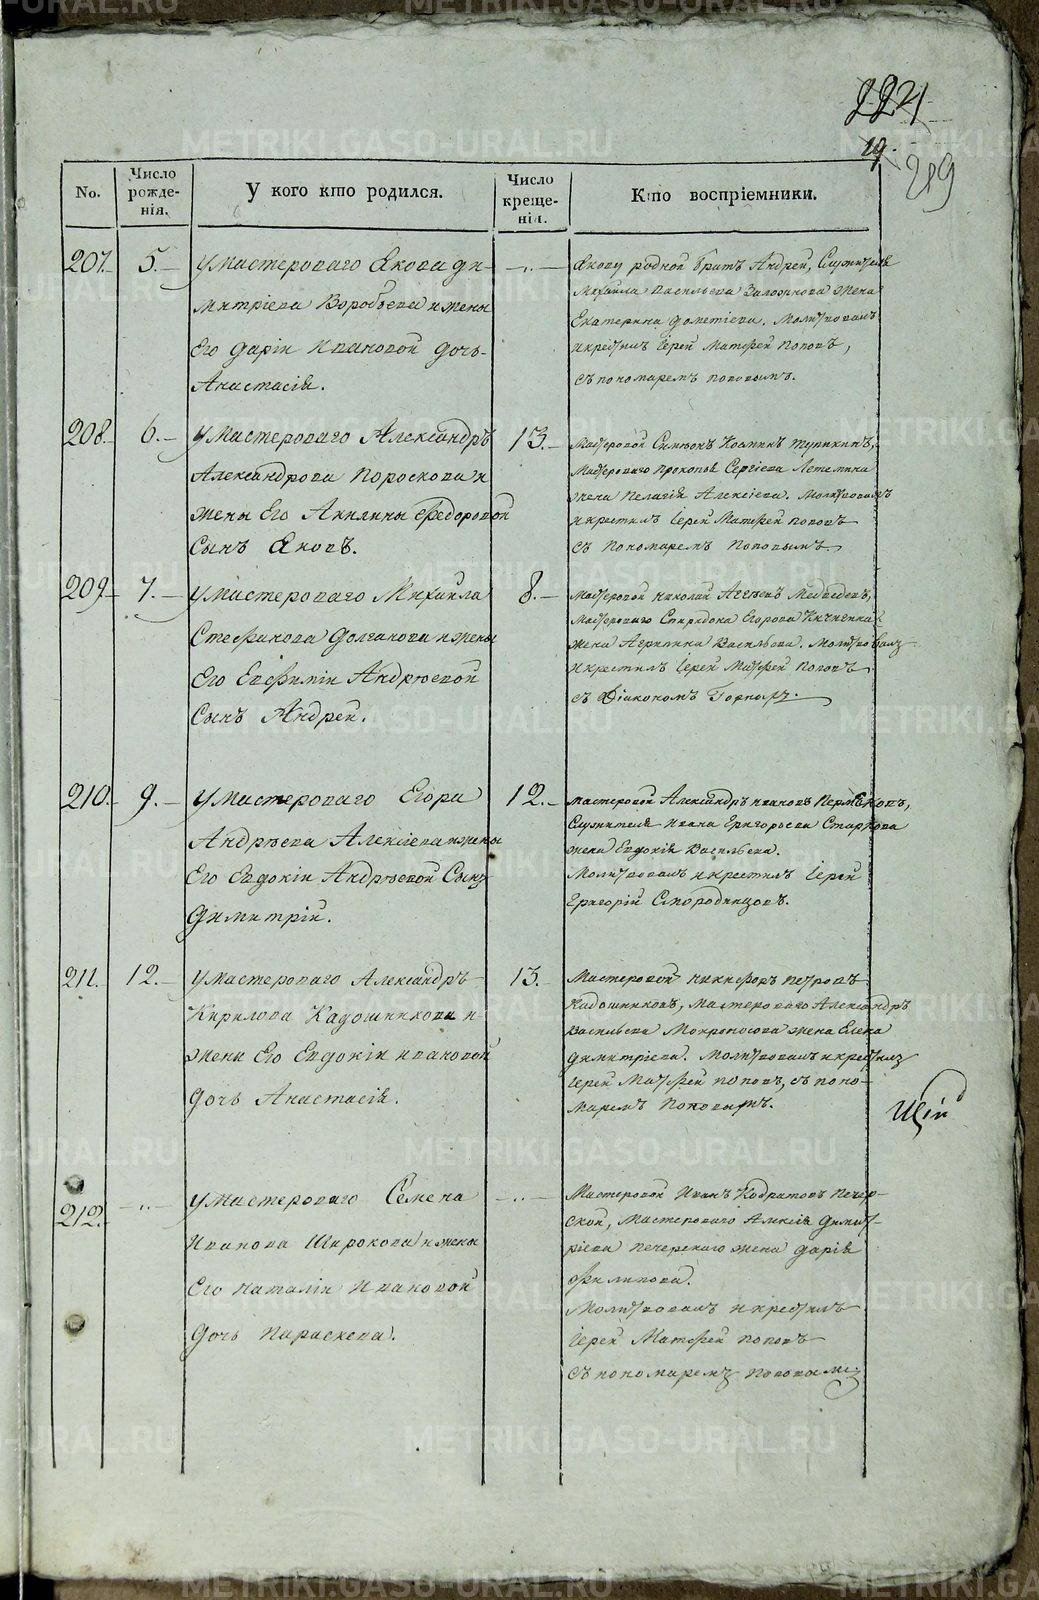 221
19.
219
No.
Число рожденія.
У кого кто родился.
Число крещенія.
Кто воспріемники.
207. 5.
У мастероваго Якова Ди-
митріева Воробьева и жены
Его Даріи Ивановой дочь
Анастасія.
Якову родной братъ Андрей, Служителя
Михаила Васильева жена
Екатерина Дометіева. Молитвовалъ
и крестилъ Іерей Матфей Поповъ,
съ пономаремъ Поповымъ.
208. 6.
У Мастероваго Александръ
Александрова Пороскова и
жены Его Акилины Федоровой
Сынъ Яковъ.
13.
Мастеровой Симеонъ
Мастероваго Прокопья Сергіева Летемина
жена Пелагія Алексіева. Молитвовалъ
и крестилъ Іерей Матфей Поповъ
съ Пономаремъ Поповымъ.
209. 7.
У мастероваго Михаила
Стефанова Долганова и жены
Его Евфиміи Андрюевой
Сынъ Андрей.
8.
Мастеровой Николай Агеевъ Медведевъ,
Мастероваго Спиридона Егорова
жена Агрипина Васильева. Молитвовалъ
и крестилъ Іерей Матфей Поповъ
съ Діакономъ
210. 9.
У Мастероваго Егора
Андрѣева Алексіева и жены
Его Евдокіи Андрѣевой Сынъ
Димитрій.
12.
Мастеровой Александръ Ивановъ Пермѣковъ,
Служителя Ивана Григорьева Старкова
жена Евдокія Васильева.
Молитвовалъ и крестилъ Іерей
Григорій Смородинцовъ.
211. 12.
У мастероваго Александръ
Кирилова Кадошникова и
жены Его Евдокіи Ивановой
дочь Анастасія.
13.
Мастеровой Никифоръ Петровъ
Кадошниковъ, Мастероваго Александръ
Васильева Мокроносова жена Елена
Димитріева. Молитвовалъ и крестилъ
Іерей Матфей Поповъ, съ поно-
маремъ Поповымъ.
212.
У мастероваго Семена
Иванова Широкова и жены
Его Наталіи Ивановой
дочь Параскева.
Мастеровой Иванъ Кодратовъ Печер-
ской, Мастероваго Алексія Димит-
ріева Печерскаго жена Дарія
Филипова.
Молитвовалъ и крестилъ
Іерей Матфей Поповъ
съ пономаремъ Поповымъ
METRIKI.GASO-URAL.RU